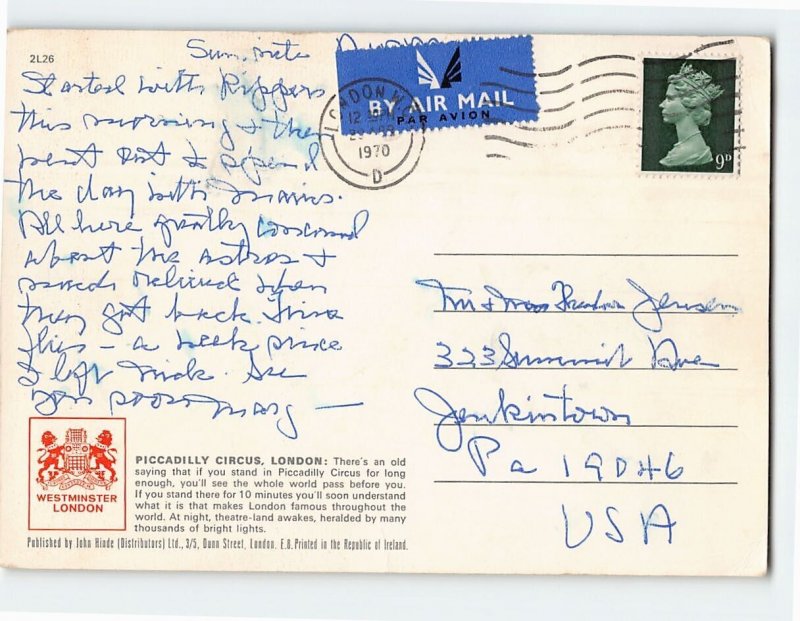 2L26
Sun. nite
Started with Rippers
this morning & then
went out to spend
the day with
All here greatly concerned
about the Astros &
much relieved when
they got back. Time
flies - a week since
I left Nick. See
you soon Marg -
BY AIR MAIL
PAR AVION
LONDON W.
12
1970
D
9D
Mr & Mrs Theodore Jensen
323 Summit Ave
Jenkintown
Pa 19046
USA
WESTMINSTER
LONDON
PICCADILLY CIRCUS, LONDON: There's an old
saying that if you stand in Piccadilly Circus for long
enough, you'll see the whole world pass before you.
If you stand there for 10 minutes you'll soon understand
what it is that makes London famous throughout the
world. At night, theatre-land awakes, heralded by many
thousands of bright lights.
Published by John Hinde (Distributors) Ltd., 3/5, Dunn Street, London. E.8. Printed in the Republic of Ireland.